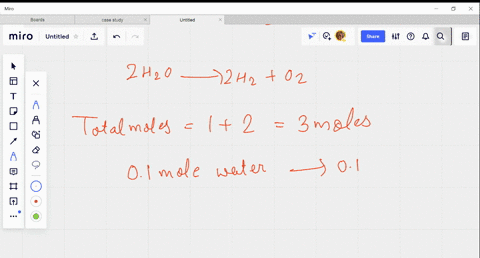 Miro
Boards
case study
Untitled
miro
Untitled
Share
2H2O ⟶ 2H2 + O2
Total moles = 1 + 2 = 3 moles
0.1 mole water ⟶ 0.1